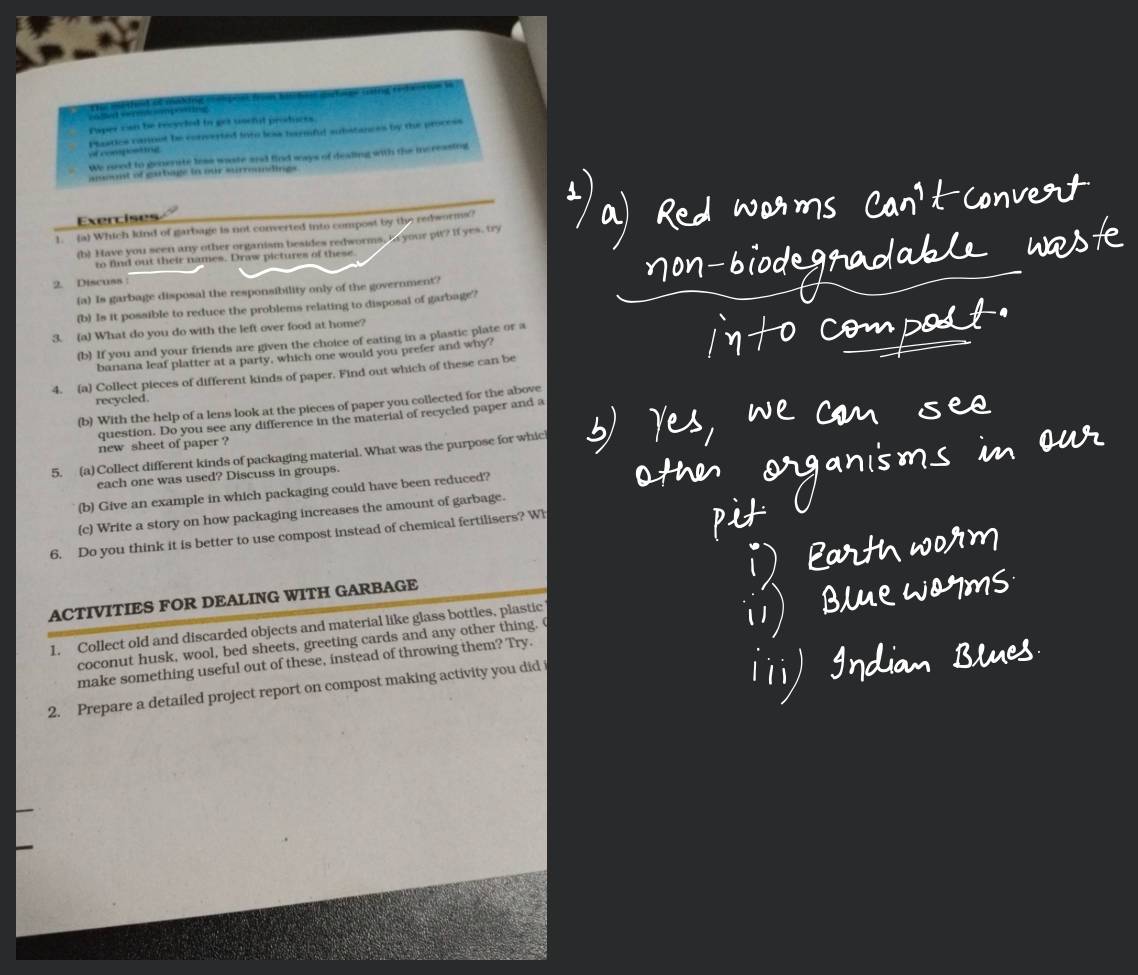 The method of making compost from kitchen garbage using redworms is
called vermicomposting.
Paper can be recycled to get useful products.
Plastics cannot be converted into less harmful substances by the process
of composting.
We need to generate less waste and find ways of dealing with the increasing
amount of garbage in our surroundings.
Exercises
1. (a) Which kind of garbage is not converted into compost by the redworms?
(b) Have you seen any other organism besides redworms, in your pit? If yes, try
to find out their names. Draw pictures of these.
2. Discuss :
(a) Is garbage disposal the responsibility only of the government?
(b) Is it possible to reduce the problems relating to disposal of garbage?
3. (a) What do you do with the left over food at home?
(b) If you and your friends are given the choice of eating in a plastic plate or a
banana leaf platter at a party, which one would you prefer and why?
4. (a) Collect pieces of different kinds of paper. Find out which of these can be
recycled.
(b) With the help of a lens look at the pieces of paper you collected for the above
question. Do you see any difference in the material of recycled paper and a
new sheet of paper ?
5. (a) Collect different kinds of packaging material. What was the purpose for which
each one was used? Discuss in groups.
(b) Give an example in which packaging could have been reduced?
(c) Write a story on how packaging increases the amount of garbage.
6. Do you think it is better to use compost instead of chemical fertilisers? Wh
ACTIVITIES FOR DEALING WITH GARBAGE
1. Collect old and discarded objects and material like glass bottles, plastic
coconut husk, wool, bed sheets, greeting cards and any other thing.
make something useful out of these, instead of throwing them? Try.
2. Prepare a detailed project report on compost making activity you did
1) a) Red worms can't convert
non-biodegradable waste
into compost.
b) Yes, we can see
other organisms in our
pit.
i) Earth worm
ii) Blue worms.
iii) Indian Blues.